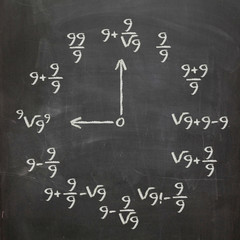 99/9
9+9/√9
9/9
9+9/9
9+9/9
⁹√9⁹
√9+9-9
9-9/9
√9+9/9
9+9/9-√9
9-9/√9
√9!-9/9